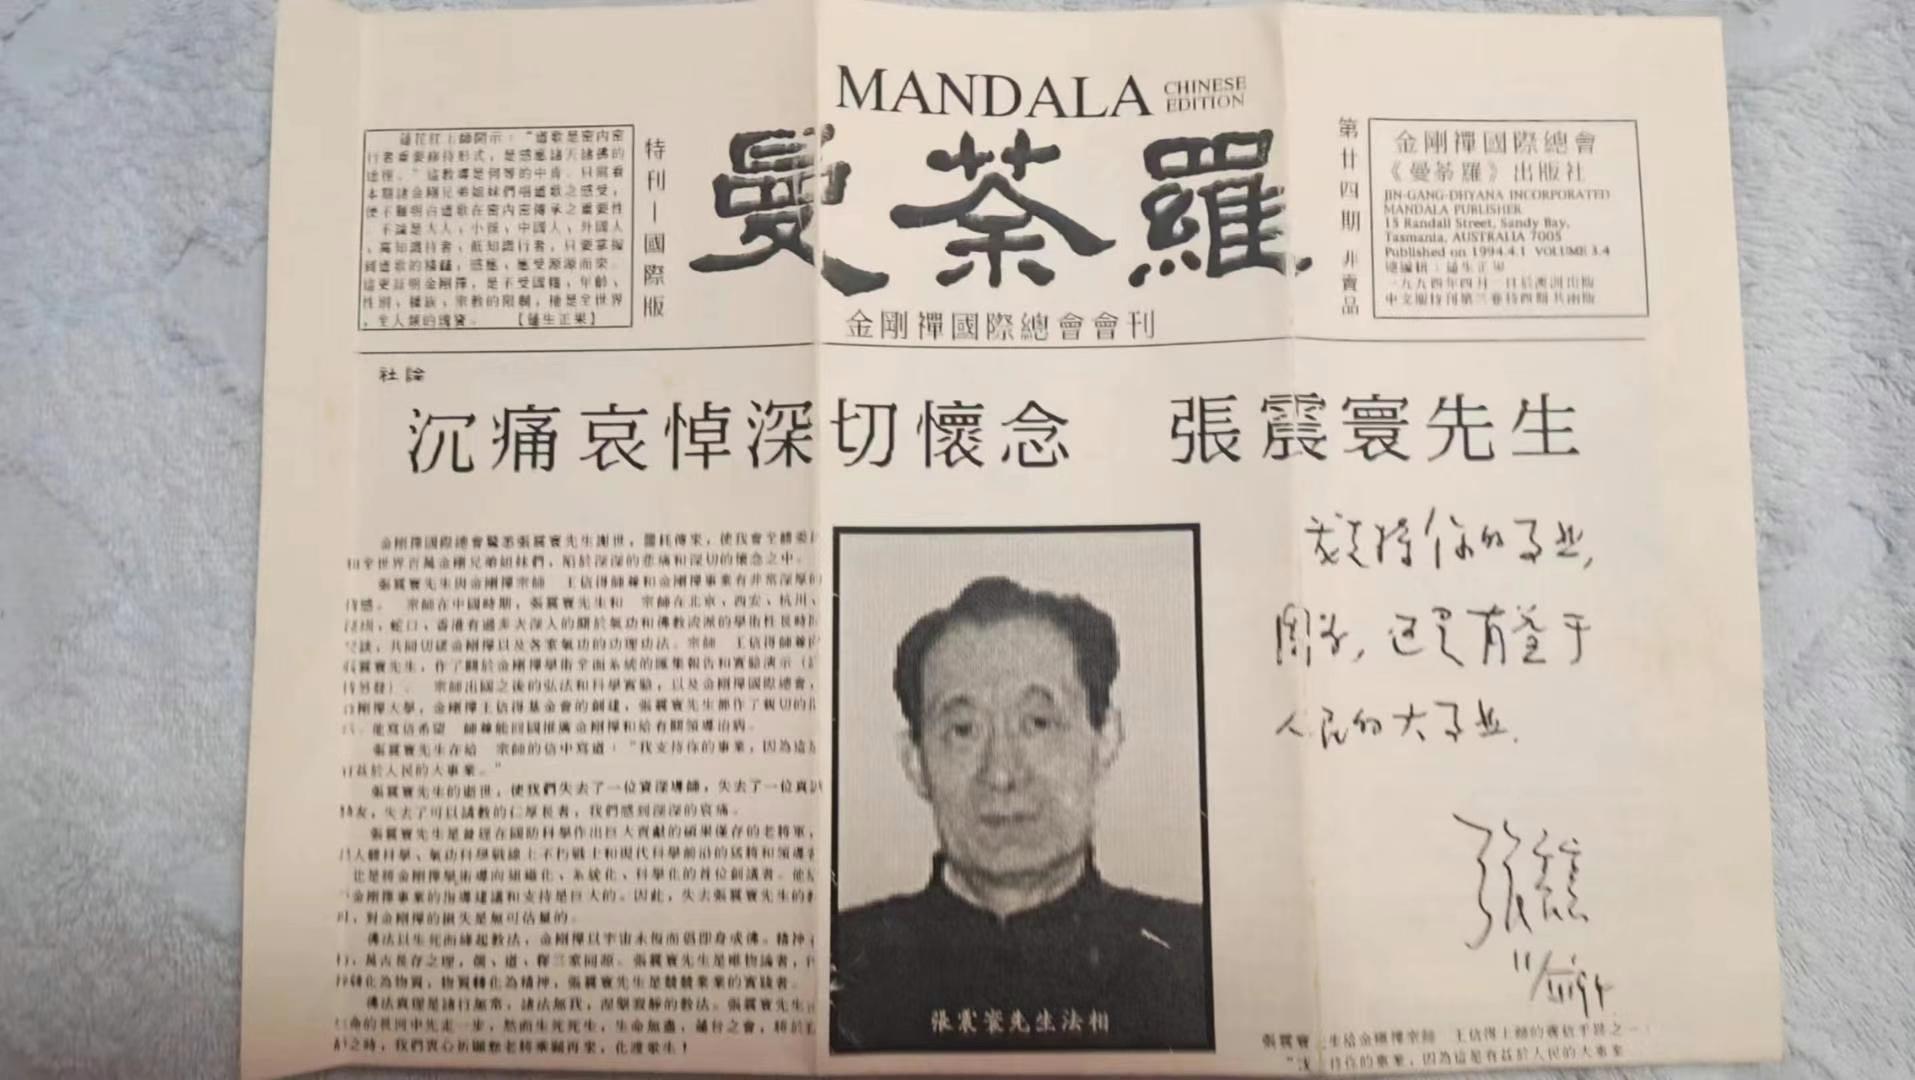 MANDALA CHINESE
EDITION
曼荼羅
金剛禪國際總會會刊
蓮花紅上師開示："道歌是密內密
行者重要修持形式，是感應諸天諸佛的
途徑。"這教導是何等的中肯。只需看
本期諸金剛兄弟姐妹們唱道歌之感受，
便不難明白道歌在密內密傳承之重要性
不論是大人、小孩、中國人、外國人
、高知識持者、低知識行者，只要掌握
到道歌的積蘊，感應、應受源源而來。
這更証明金剛禪，是不受國籍、年齡、
性別、種族、宗教的限制，祂是全世界
、全人類的瑰寶。 【蓮生正果】
特刊—國際版
第廿四期 非賣品
金剛禪國際總會
《曼荼羅》出版社
JIN-GANG-DHYANA INCORPORATED
MANDALA PUBLISHER
15 Randall Street, Sandy Bay,
Tasmania, AUSTRALIA 7005
Published on 1994.4.1 VOLUME 3.4
總編輯：蓮生正果
一九九四年四月一日於澳洲出版
中文版特刊第三卷特四期共兩版
社論
沉痛哀悼深切懷念 張震寰先生
金剛禪國際總會驚悉張震寰先生謝世，噩耗傳來，使我會全體委
和全世界百萬金剛兄弟姐妹們，陷於深深的悲痛和深切的懷念之中。
張震寰先生與金剛禪宗師 王信得師尊和金剛禪事業有非常深厚的
情感。 宗師在中國時期，張震寰先生和 宗師在北京、西安、杭州、
蛇口、香港有過非次深入的關於氣功和佛教流派的學術性長時
談，共同切磋金剛禪以及各家氣功的功理功法。宗師 王信得師尊
張震寰先生，作了關於金剛禪學術全面系統的匯集報告和實驗演示
宗師出國之後的弘法和科學實驗，以及金剛禪國際總會，
金剛禪大學，金剛禪王信得基金會的創建，張震寰先生都作了親切的
他寫信希望 師尊能回國推廣金剛禪和給有關領導治病。
張震寰先生在給 宗師的信中寫道："我支持你的事業，因為這是
有益於人民的大事業。"
張震寰先生的逝世，使我們失去了一位資深導師，失去了一位真
友，失去了可以請教的仁厚長者，我們感到深深的哀痛。
張震寰先生是曾經在國防科學作出巨大貢獻的碩果僅存的老將軍，
人體科學、氣功科學戰線上不朽戰士和現代科學前沿的猛將和領導
是將金剛禪學術導向組織化、系統化、科學化的首位創議者。他
金剛禪事業的指導建議和支持是巨大的。因此，失去張震寰先生的
對金剛禪的損失是無可估量的。
佛法以生死而緣起教法，金剛禪以宇宙未復而倡即身成佛。精神
萬古長存之理，儒、道、釋三家同源。張震寰先生是唯物論者，
轉化為物質，物質轉化為精神，張震寰先生是兢兢業業的實踐者。
佛法真理是諸行無常，諸法無我，涅槃寂靜的教法。張震寰先生
命的長河中先走一步，然而生死死生，生命無盡，蓮台之會，將於
之時，我們衷心祈願歷老將乘願再來，化渡眾生！
張震寰先生法相
我支持你的事业，
因为，这是有益于
人民的大事业.
張震寰先生給金剛禪宗師 王信得上師的舊信手跡之一
"我支持你的事業，因為這是有益於人民的大事業